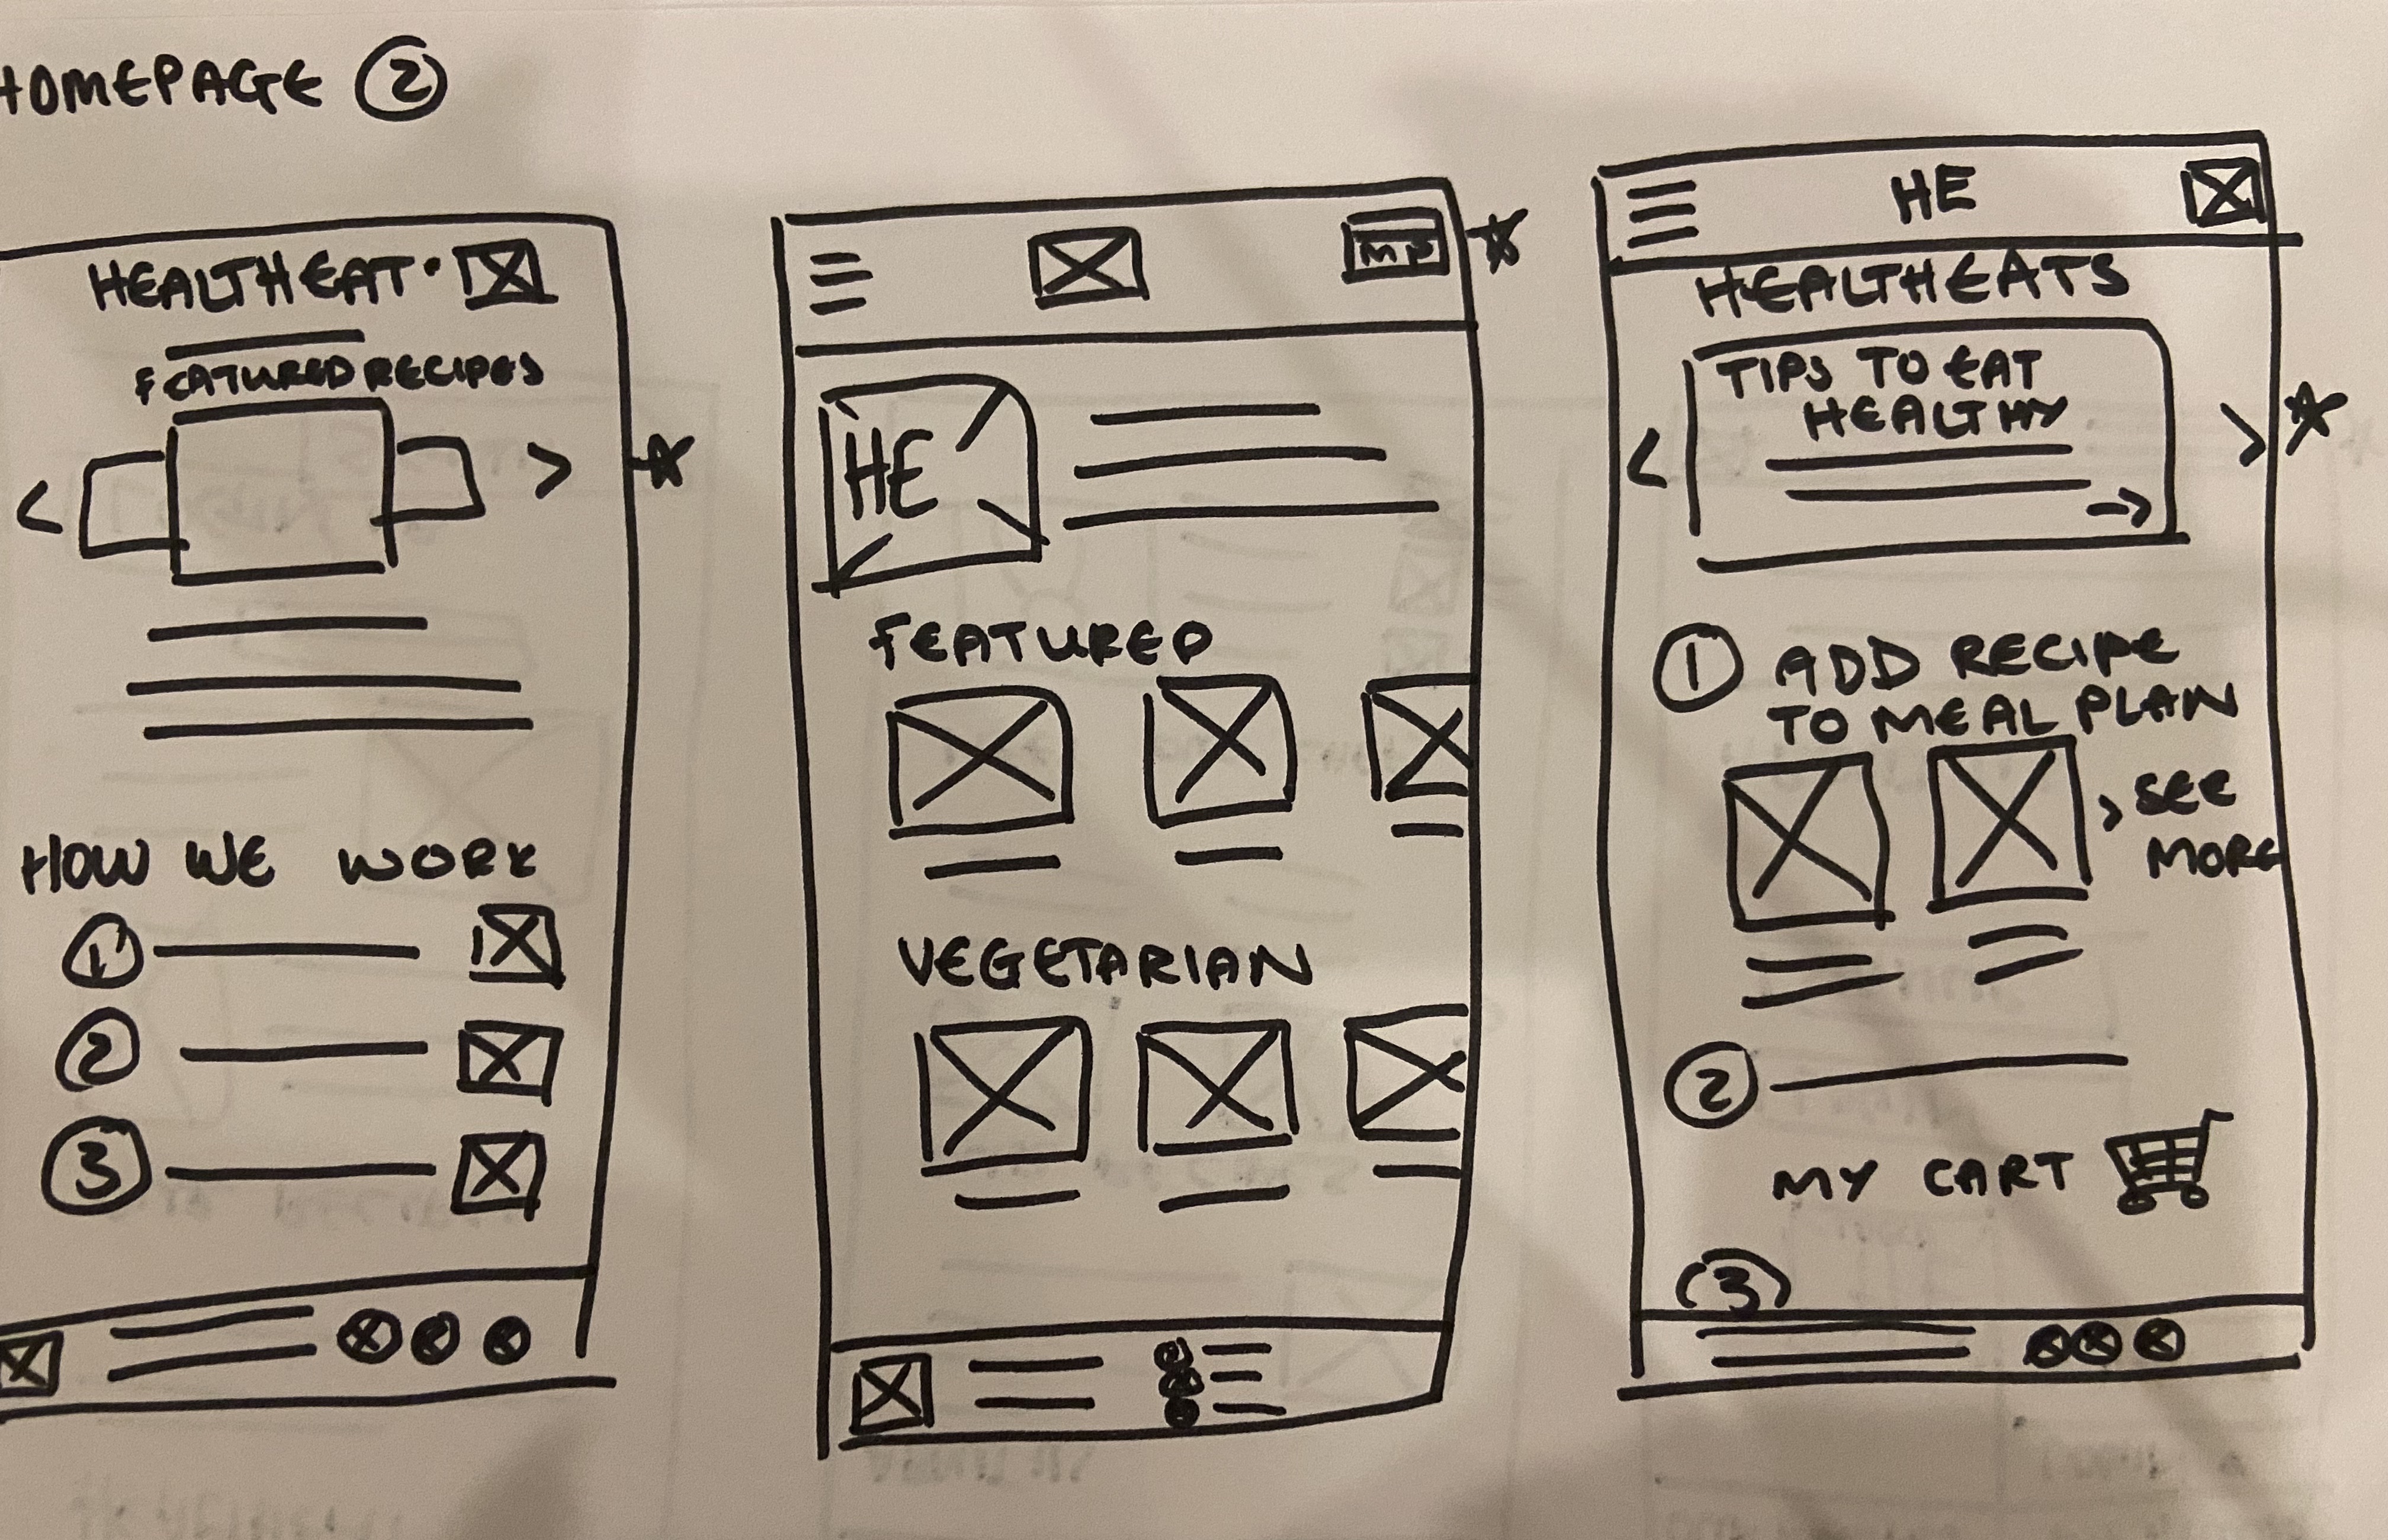 HOMEPAGE 2
HEALTHEAT.
FEATURED RECIPES
< >
HOW WE WORK
1
2
3
MP
HE
FEATURED
VEGETARIAN
HE
HEALTHEATS
TIPS TO EAT
HEALTHY
< >
→
1 ADD RECIPE
TO MEAL PLAN
> SEE
MORE
2
MY CART
3